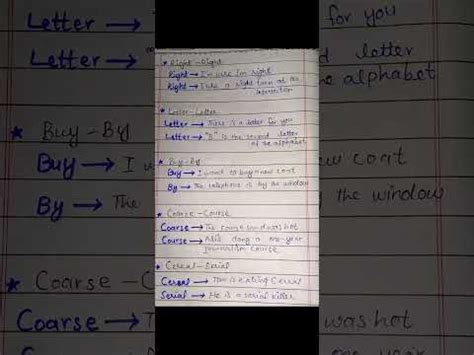 * Right-Right
Right → I'm sure I'm right
Right → Take a right turn at the
intersection
* Letter-Letter
Letter → There is a letter for you
Letter → "B" is the second letter
of the alphabet
* Buy-By
Buy → I want to buy a new coat
By → The telephone is by the window
* Coarse-Course
Coarse → The coarse sand was hot
Course → Ali is doing a one-year
journalism course
* Cereal-Serial
Cereal → Tom is eating Cereal
Serial → He is a serial killer
Letter →
Letter →
* Buy-By
Buy → I w
By → The
* Coarse-C
Coarse →
for you
letter
alphabet
coat
window
was hot